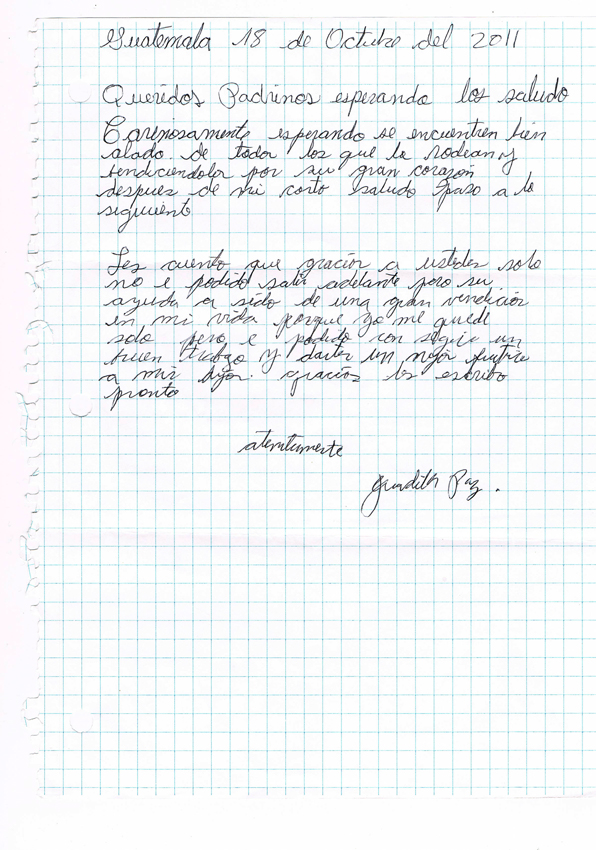 Guatemala 18 de Octubre del 2011
Queridos Padrinos esperando los saludo
Cariñosamente esperando se encuentren bien
alado de todos los que la rodean y
bendiciendolos por su gran corazon
despues de mi corto saludo paso a lo
siguiente
Les cuento que gracias a ustedes solo
no e podido salir adelante pero su
ayuda a sido de una gran vendicion
en mi vida porque yo me quede
sola pero e podido con segir un
buen trabajo y darles un mejor futuro
a mis hijos. gracias les escribo
pronto
atentamente
Paz.